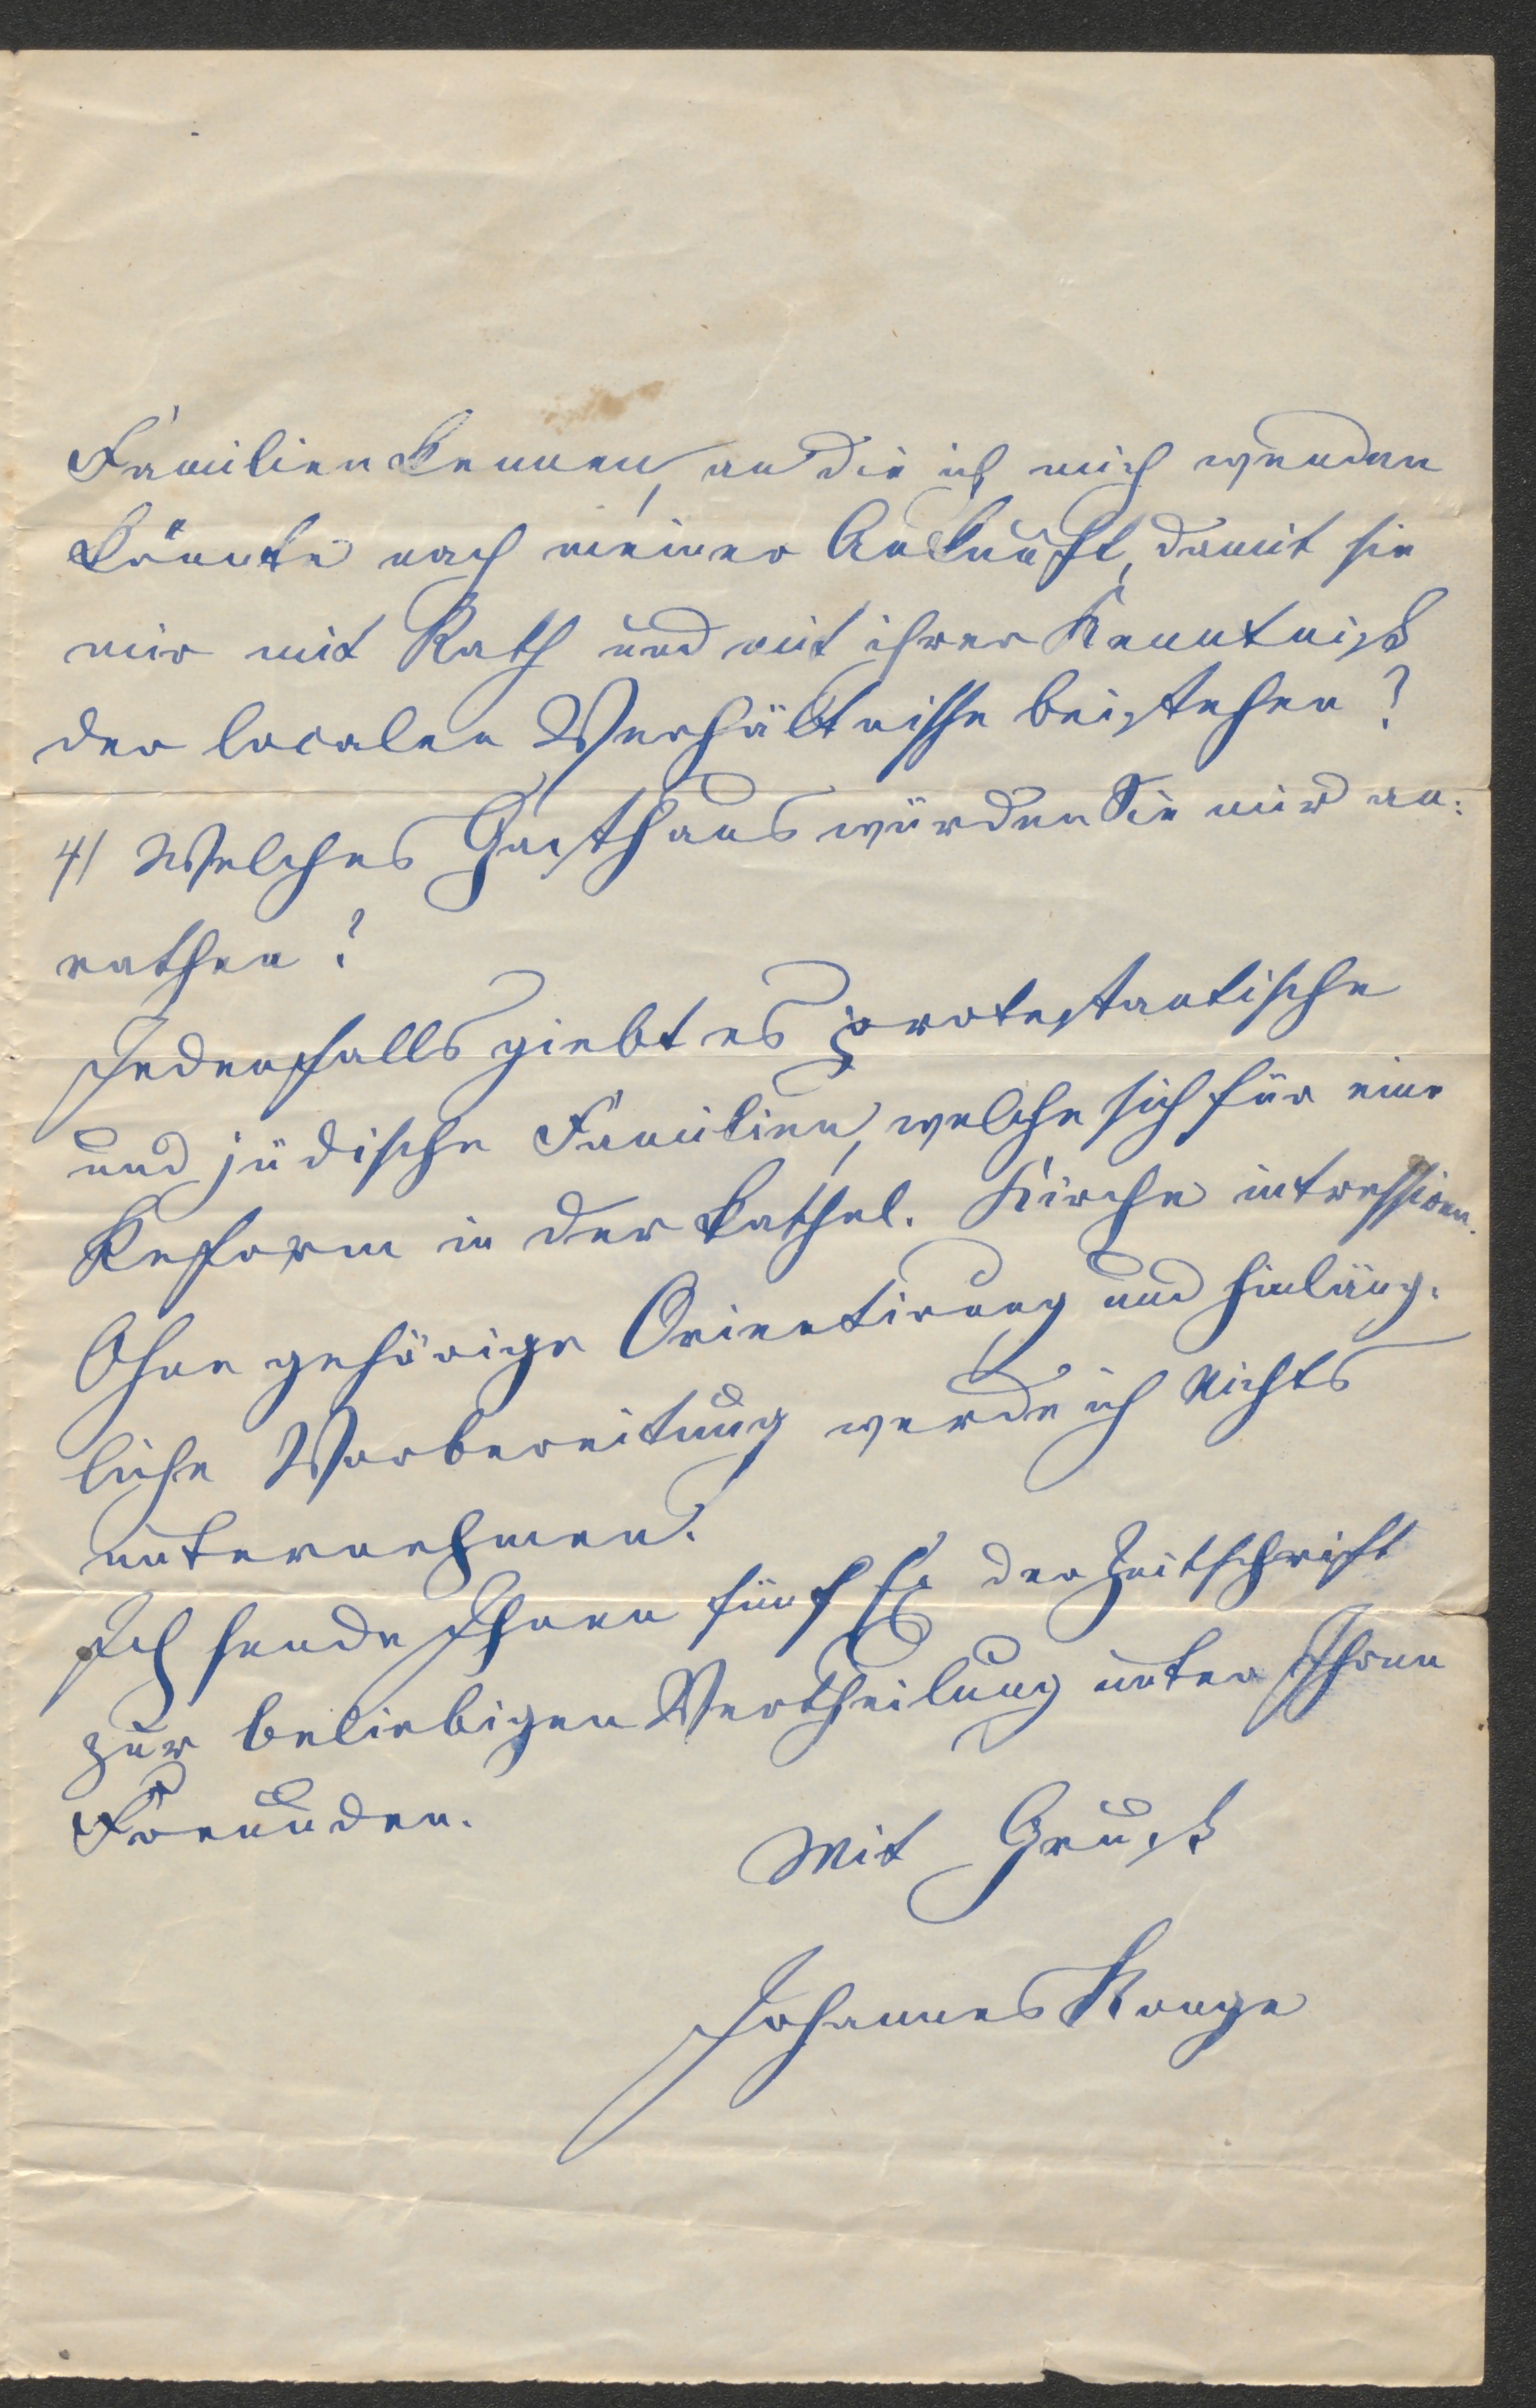 Familien kennen, an die ich mich wenden
könnte nach meiner Ankunft, damit sie
mir mit Rath und mit ihrer Kenntniß
der localen Verhältnisse beistehen?
4/ Welches Gasthaus würden Sie mir an-
rathen?
Jedenfalls giebt es protestantische
und jüdische Familien, welche sich für eine
Reform in der kathol. Kirche intressiren.
Ohne gehörige Orientirung und hinläng-
liche Vorbereitung werde ich Nichts
unternehmen.
Ich sende Ihnen fünf Ex der Zeitschrift
zur beliebigen Vertheilung unter Ihren
Freunden.
Mit Gruß
Johannes Ronge